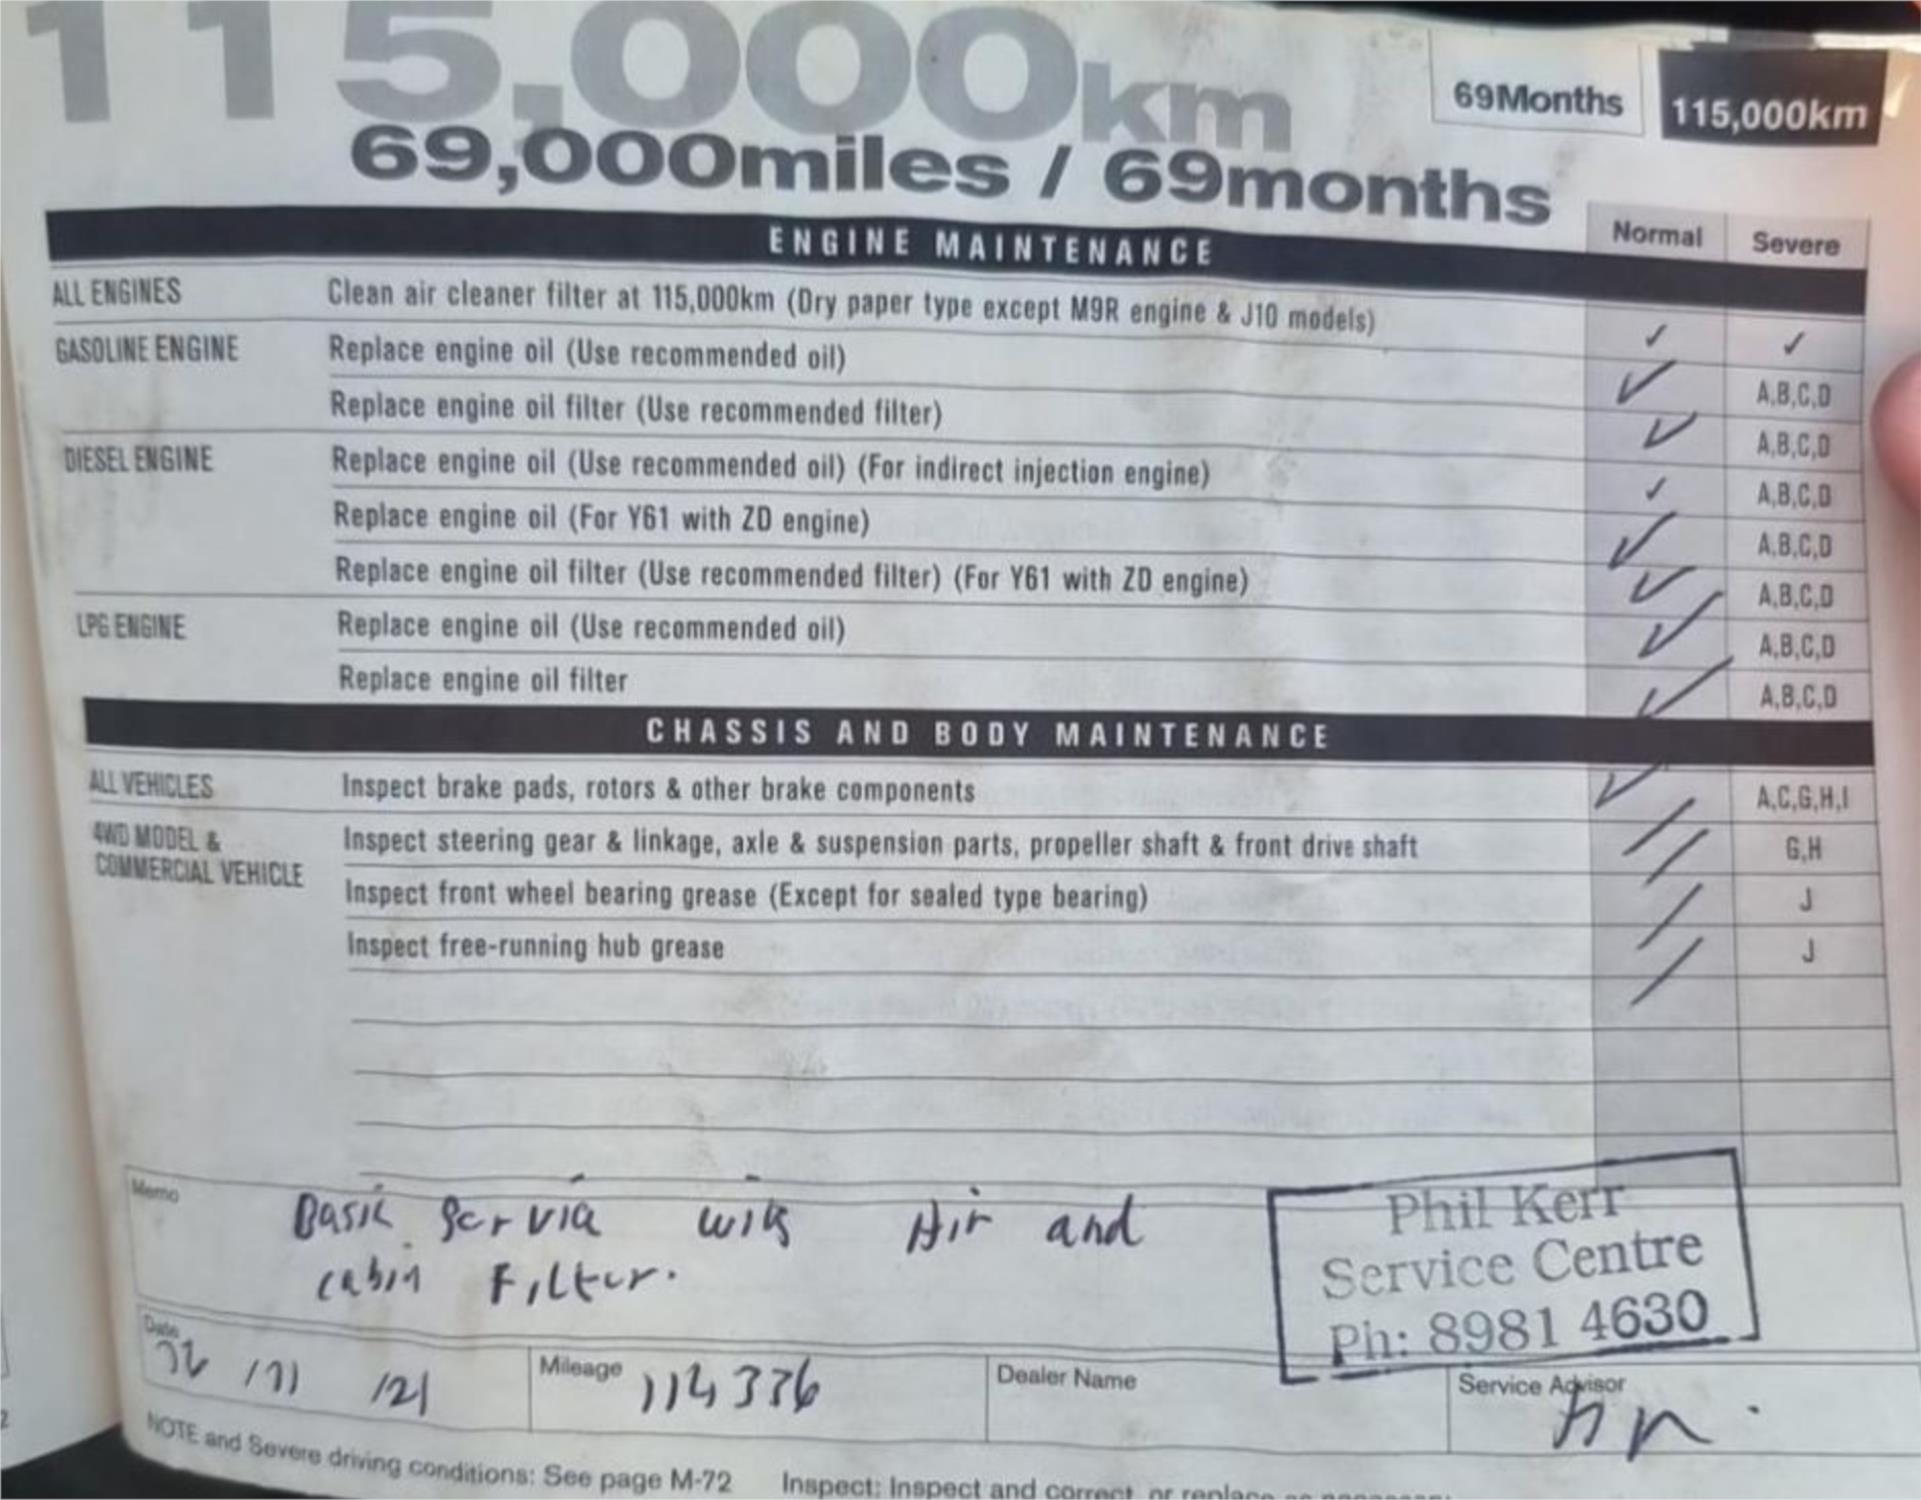 115,000km
69,000miles / 69months
69Months
115,000km
ENGINE MAINTENANCE
Normal
Severe
ALL ENGINES Clean air cleaner filter at 115,000km (Dry paper type except M9R engine & J10 models) ✓ ✓
GASOLINE ENGINE Replace engine oil (Use recommended oil) ✓ A,B,C,D
Replace engine oil filter (Use recommended filter) ✓ A,B,C,D
DIESEL ENGINE Replace engine oil (Use recommended oil) (For indirect injection engine) ✓ A,B,C,D
Replace engine oil (For Y61 with ZD engine) ✓ A,B,C,D
Replace engine oil filter (Use recommended filter) (For Y61 with ZD engine) ✓ A,B,C,D
LPG ENGINE Replace engine oil (Use recommended oil) ✓ A,B,C,D
Replace engine oil filter ✓ A,B,C,D
CHASSIS AND BODY MAINTENANCE
ALL VEHICLES Inspect brake pads, rotors & other brake components ✓ A,C,G,H,I
4WD MODEL & COMMERCIAL VEHICLE
Inspect steering gear & linkage, axle & suspension parts, propeller shaft & front drive shaft G,H
Inspect front wheel bearing grease (Except for sealed type bearing) J
Inspect free-running hub grease J
Memo
Basic Service with Air and
cabin Filter.
Phil Kerr
Service Centre
Ph: 8981 4630
Date
/21
Mileage 114336
Dealer Name
Service Advisor
NOTE and Severe driving conditions: See page M-72 Inspect: Inspect and correct or replace as necessary